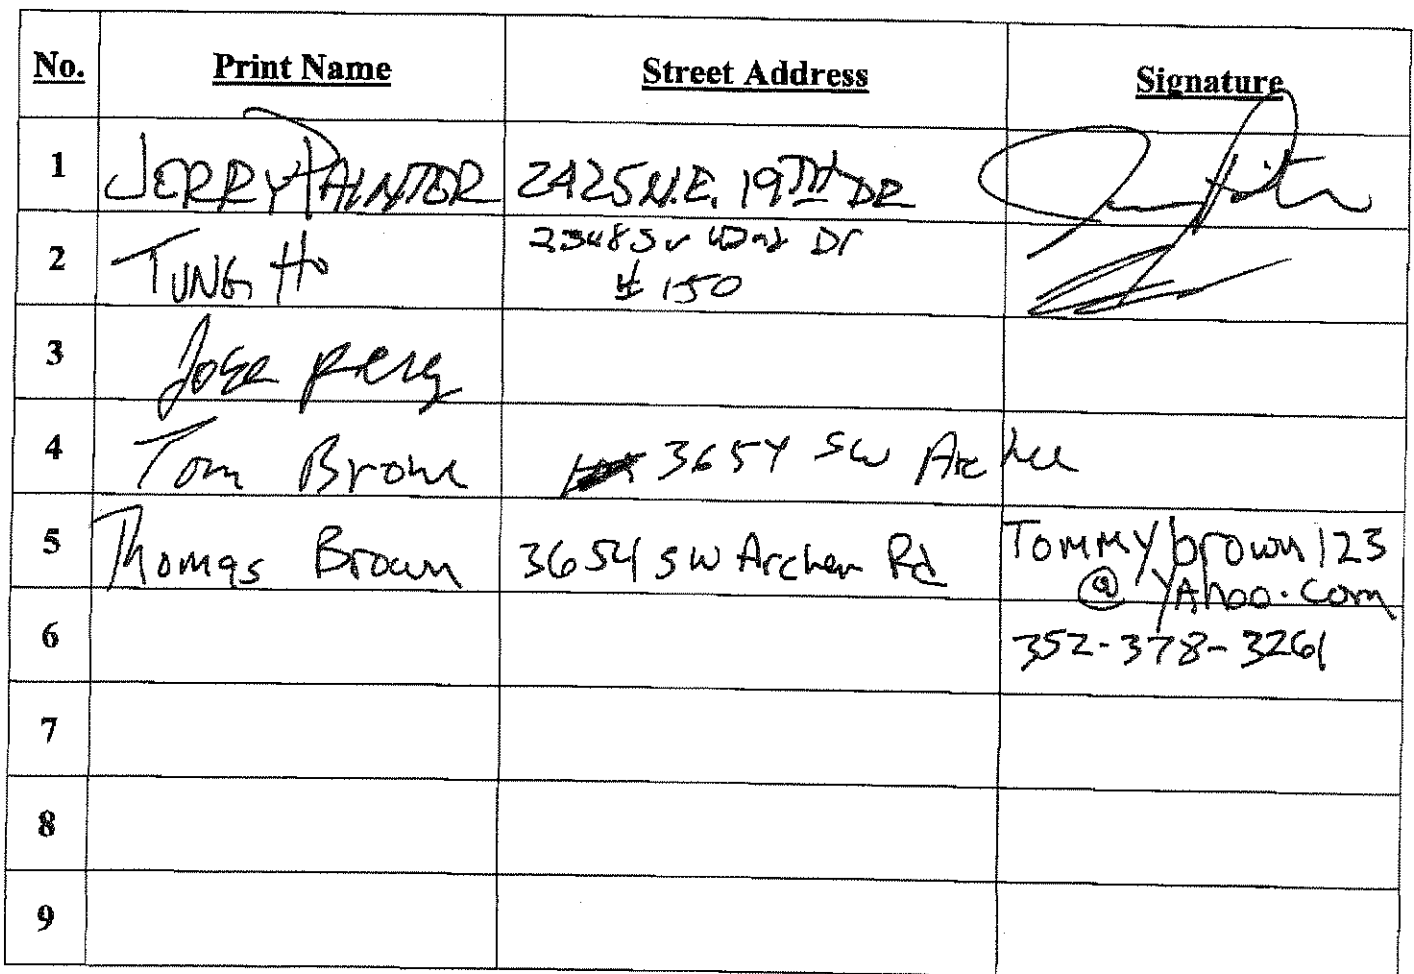 No. Print Name Street Address Signature
1 JERRY PAINTOR 2425 N.E. 19TH DR
2 TUNG HO 2348 SW Dr
# 150
3 Jose Perez
4 Tom Brown 3654 SW Archer
5 Thomas Brown 3654 SW Archer Rd Tommybrown123
@YAhoo.com
6 352-378-3261
7
8
9